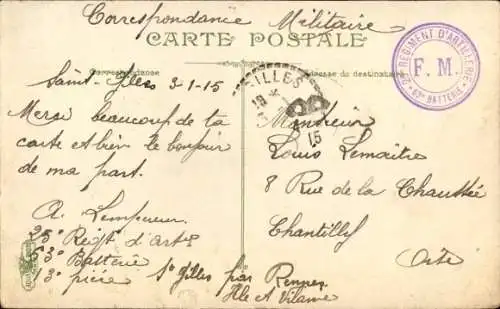 Correspondance Militaire
CARTE POSTALE
Correspondance
Adresse du destinataire
REGIMENT D'ARTILLERIE
F. M.
BATTERIE
GILLES
15
Saint-Gilles 3-1-15
Merci beaucoup de ta
carte et bien le bonjour
de ma part.
A. Lempereur
Régt d'art
53e Batterie
3e pièce
St Gilles par Rennes
Ille et Vilaine
Monsieur
Louis Lemaître
8 Rue de la Chaussée
Chantilly
Oise